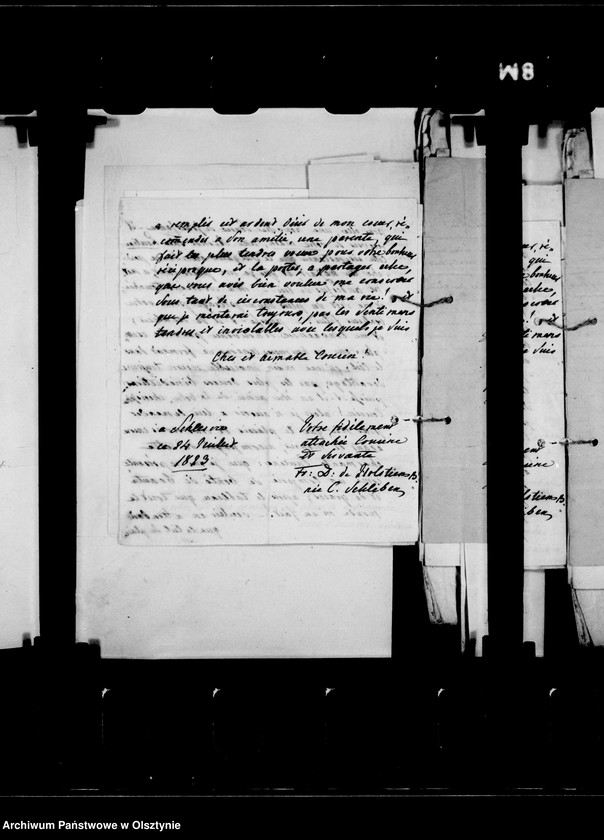 8M
remplis cet ardent désir de mon coeur, ré-
comendes a Son amitié, une parente, qui
fait les plus tendres voeux pour votre bonheur
réciproque, et la portes, a partager celle,
que vous avés bien voulue me conserver
dans tant de circonstances de ma vie! et
que je mériterai toujours, par les Sentimens
tendres et inviolables avec lesquels je Suis
Cher et aimable Cousin!
a Schleswic
ce 24 Juillet
1823
Votre fidèlement
attachée Cousine
et Servante
Fr: D: de Holstein B.
née C. Schlieben
Archiwum Państwowe w Olsztynie